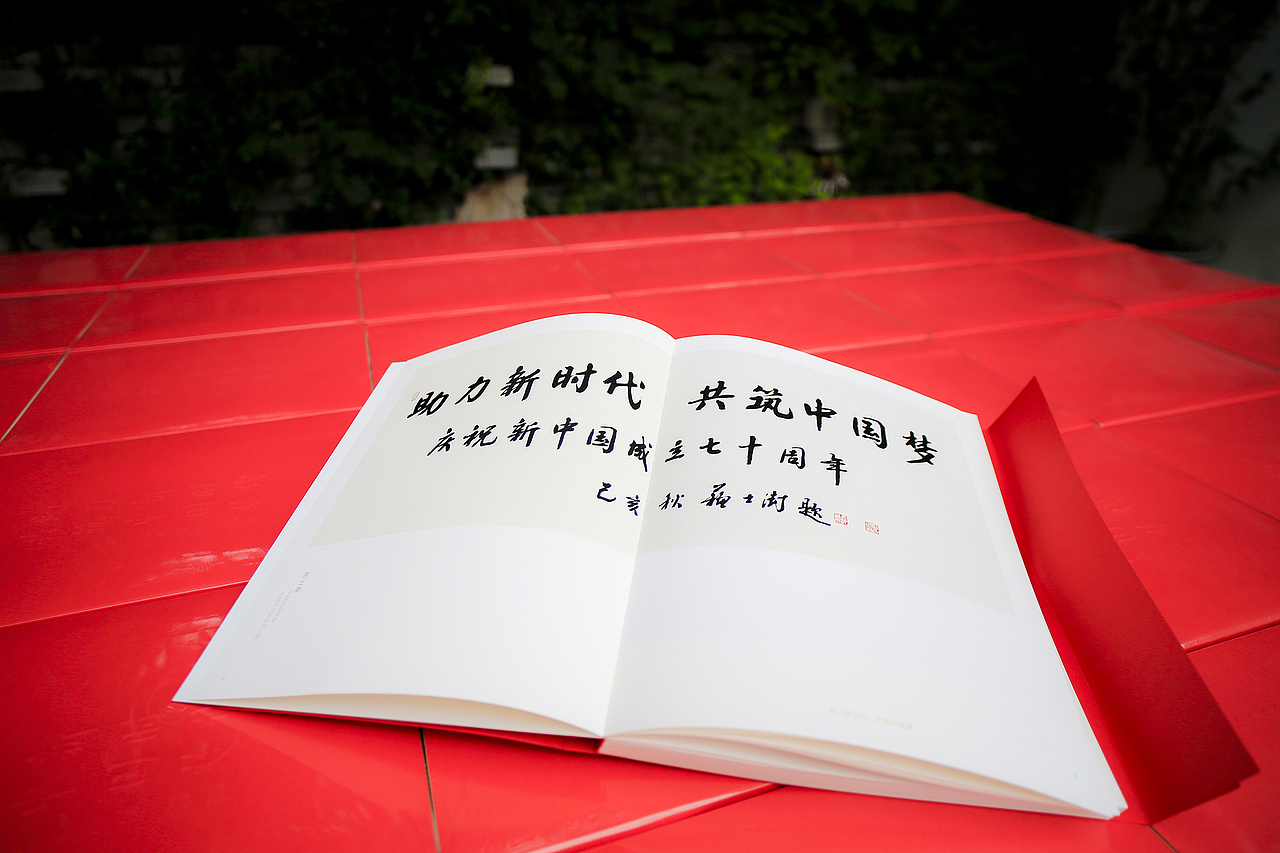 助力新时代 共筑中国梦
庆祝新中国成立七十周年
己亥秋 苏士澍题